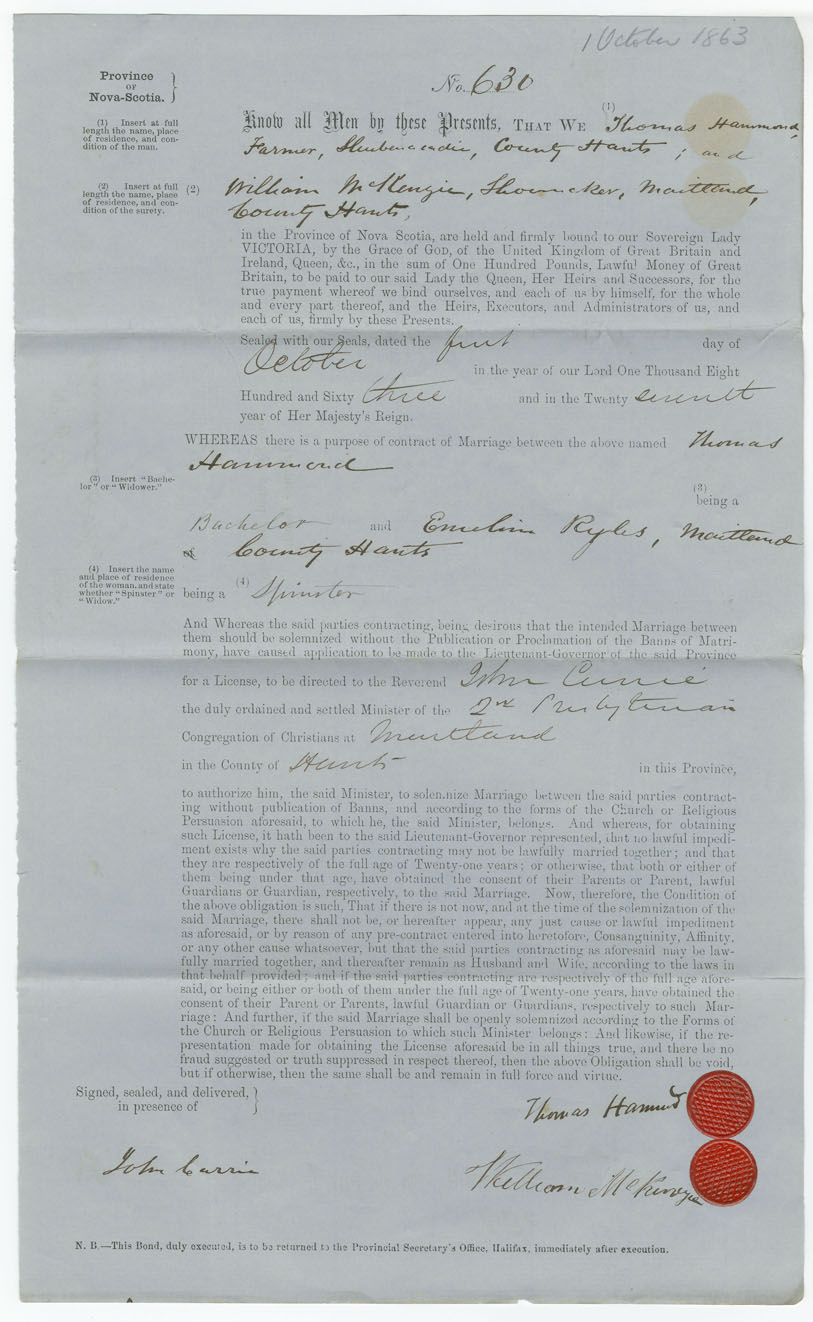 1 October 1863
Province
OF
Nova-Scotia.
No. 630
(1) Insert at full length the name, place of residence, and condition of the man.
Know all Men by these Presents, THAT WE (1) Thomas Hammond,
Farmer, Shubenacadie, County Hants ; and
(2) Insert at full length the name, place of residence, and condition of the surety.
(2) William McKenzie, Shoemaker, Maitland,
County Hants,
in the Province of Nova Scotia, are held and firmly bound to our Sovereign Lady
VICTORIA, by the Grace of GOD, of the United Kingdom of Great Britain and
Ireland, Queen, &c., in the sum of One Hundred Pounds, Lawful Money of Great
Britain, to be paid to our said Lady the Queen, Her Heirs and Successors, for the
true payment whereof we bind ourselves, and each of us by himself, for the whole
and every part thereof, and the Heirs, Executors, and Administrators of us, and
each of us, firmly by these Presents.
Sealed with our Seals, dated the first day of
October in the year of our Lord One Thousand Eight
Hundred and Sixty three and in the Twenty seventh
year of Her Majesty's Reign.
WHEREAS there is a purpose of contract of Marriage between the above named Thomas
Hammond
(3) Insert "Bachelor" or "Widower."
(3)
being a
Bachelor and Emelin Ryles, Maitland
County Hants
(4) Insert the name and place of residence of the woman, and state whether "Spinster" or "Widow."
being a (4) Spinster
And Whereas the said parties contracting, being desirous that the intended Marriage between
them should be solemnized without the Publication or Proclamation of the Banns of Matri-
mony, have caused application to be made to the Lieutenant-Governor of the said Province
for a License, to be directed to the Reverend John Currie
the duly ordained and settled Minister of the 2nd Presbyterian
Congregation of Christians at Maitland
in the County of Hants in this Province,
to authorize him, the said Minister, to solemnize Marriage between the said parties contract-
ing without publication of Banns, and according to the forms of the Church or Religious
Persuasion aforesaid, to which he, the said Minister, belongs. And whereas, for obtaining
such License, it hath been to the said Lieutenant-Governor represented, that no lawful impedi-
ment exists why the said parties contracting may not be lawfully married together; and that
they are respectively of the full age of Twenty-one years; or otherwise, that both or either of
them being under that age, have obtained the consent of their Parents or Parent, lawful
Guardians or Guardian, respectively, to the said Marriage. Now, therefore, the Condition of
the above obligation is such, That if there is not now, and at the time of the solemnization of the
said Marriage, there shall not be, or hereafter appear, any just cause or lawful impediment
as aforesaid, or by reason of any pre-contract entered into heretofore, Consanguinity, Affinity,
or any other cause whatsoever, but that the said parties contracting as aforesaid may be law-
fully married together, and thereafter remain as Husband and Wife, according to the laws in
that behalf provided; and if the said parties contracting are respectively of the full age afore-
said, or being either or both of them under the full age of Twenty-one years, have obtained the
consent of their Parent or Parents, lawful Guardian or Guardians, respectively to such Mar-
riage: And further, if the said Marriage shall be openly solemnized according to the Forms of
the Church or Religious Persuasion to which such Minister belongs: And likewise, if the re-
presentation made for obtaining the License aforesaid be in all things true, and there be no
fraud suggested or truth suppressed in respect thereof, then the above Obligation shall be void,
but if otherwise, then the same shall be and remain in full force and virtue.
Signed, sealed, and delivered,
in presence of
Thomas Hammond
John Currie
William McKenzie
N. B.—This Bond, duly executed, is to be returned to the Provincial Secretary's Office, Halifax, immediately after execution.